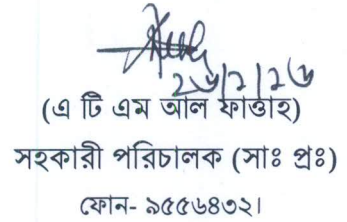 ২৬/২/২৬
(এ টি এম আল ফাত্তাহ)
সহকারী পরিচালক (সাঃ প্রঃ)
ফোন- ৯৫৫৬৪৩২।